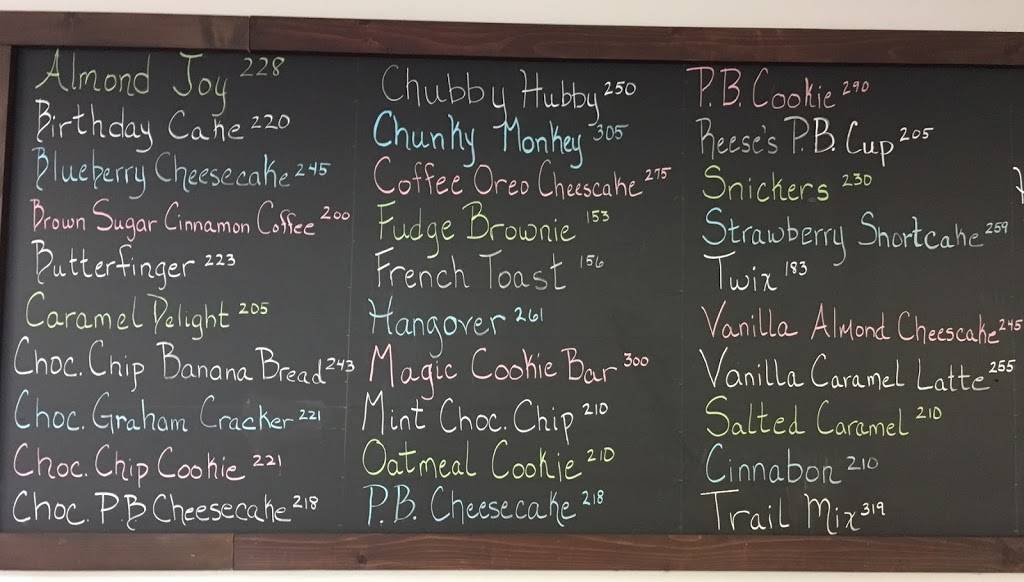 Almond Joy 228
Birthday Cake 220
Blueberry Cheesecake 245
Brown Sugar Cinnamon Coffee 200
Butterfinger 223
Caramel Delight 205
Choc. Chip Banana Bread 243
Choc. Graham Cracker 221
Choc. Chip Cookie 221
Choc. P.B Cheesecake 218
Chubby Hubby 250
Chunky Monkey 305
Coffee Oreo Cheescake 275
Fudge Brownie 153
French Toast 156
Hangover 261
Magic Cookie Bar 300
Mint Choc. Chip 210
Oatmeal Cookie 210
P.B. Cheesecake 218
P.B. Cookie 290
Reese's P.B. Cup 205
Snickers 230
Strawberry Shortcake 259
Twix 183
Vanilla Almond Cheescake 245
Vanilla Caramel Latte 255
Salted Caramel 210
Cinnabon 210
Trail Mix 319